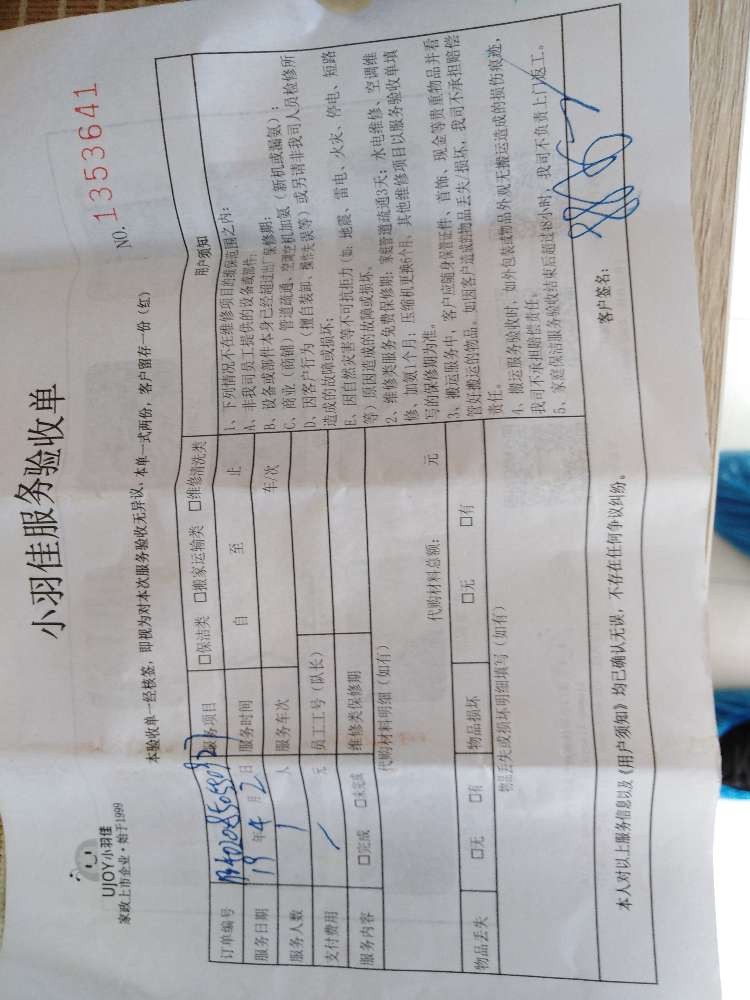 UJOY小羽佳
家政上市企业·始于1999
小羽佳服务验收单
NO. 1353641
本验收单一经核签，即视为对本次服务验收无异议、本单一式两份，客户留存一份（红）
订单编号
服务项目 □保洁类 □搬家运输类 □维修清洗类
服务日期 19 年 4 月 2 日 服务时间 自 至 止
服务人数 1 人 服务车次 车/次
支付费用 / 元 员工工号（队长）
服务内容 □完成 □未完成 维修类保修期
代购材料明细（如有）
代购材料总额： 元
物品丢失 □无 □有 物品损坏 □无 □有
物品丢失或损坏明细填写（如有）
用户须知
1、下列情况不在维修项目的维保范围之内：
A、非我司员工提供的设备或部件；
B、设备或部件本身已经超过出厂保修期；
C、商业（商铺）管道疏通、空调空机加氨（新机或漏氨）；
D、因客户行为（擅自装卸、操作失误等）或另请非我司人员检修所
造成的故障或损坏；
E、因自然灾害等不可抗拒力（如：地震、雷电、火灾、停电、短路
等）原因造成的故障或损坏。
2、维修类服务免费保修期：家庭管道疏通3天；水电维修、空调维
修、加氨1个月；压缩机更换6个月，其他维修项目以服务验收单填
写的保修期为准。
3、搬运服务中，客户应随身保管证件、首饰、现金等贵重物品并看
管好搬运的物品，如因客户造成的物品丢失/损坏，我司不承担赔偿
责任。
4、搬运服务验收时，如外包装或物品外观无搬运造成的损伤痕迹，
我司不承担赔偿责任。
5、家庭保洁服务验收结束后超过48小时，我司不负责上门返工。
本人对以上服务信息以及《用户须知》均已确认无误，不存在任何争议纠纷。
客户签名：